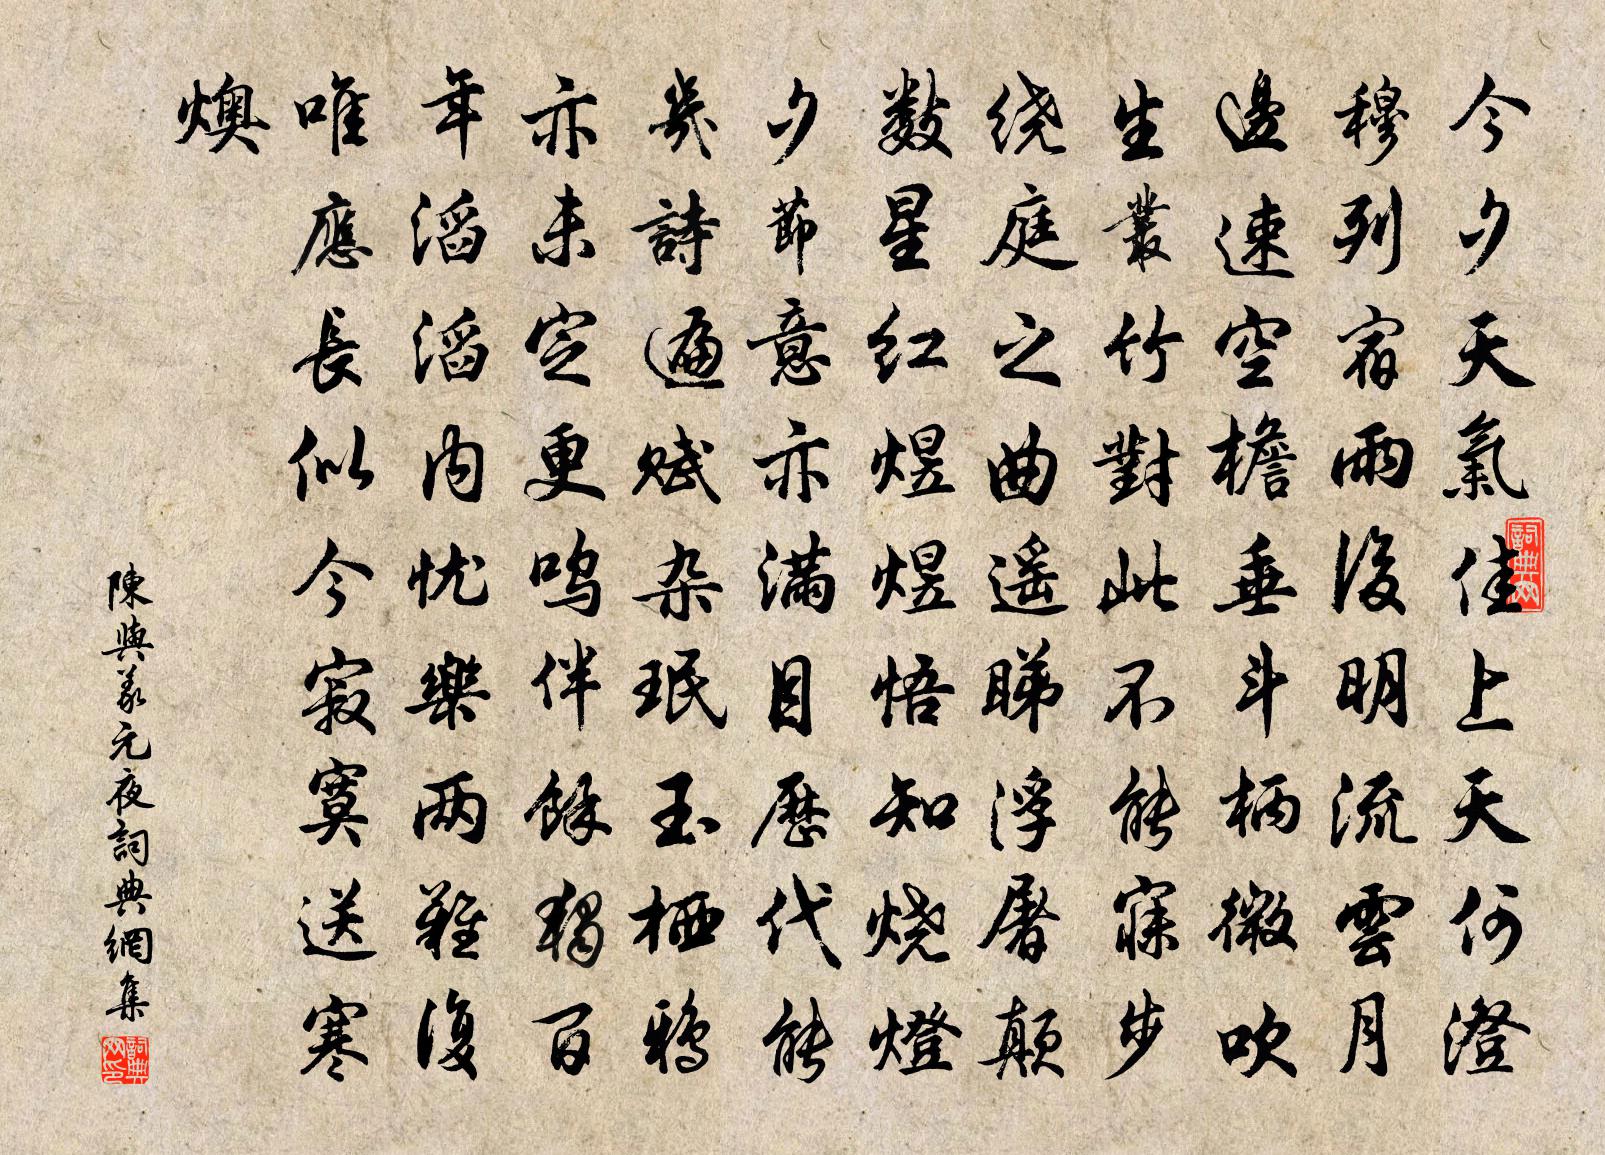 今夕天氣佳上天何澄
穆列宿雨後明流雲月
邊速空檐垂斗柄微吹
生叢竹對此不能寐步
繞庭之曲遥睇浮屠颠
数星红煜煜悟知烧燈
夕節意亦满目歷代能
幾詩遍赋杂珉玉栖鴉
亦未定更鸣伴餘獨百
年滔滔内忧樂两難復
唯應長似今寂寞送寒
燠
陳與義元夜詞典網集
詞典网
詞典网印